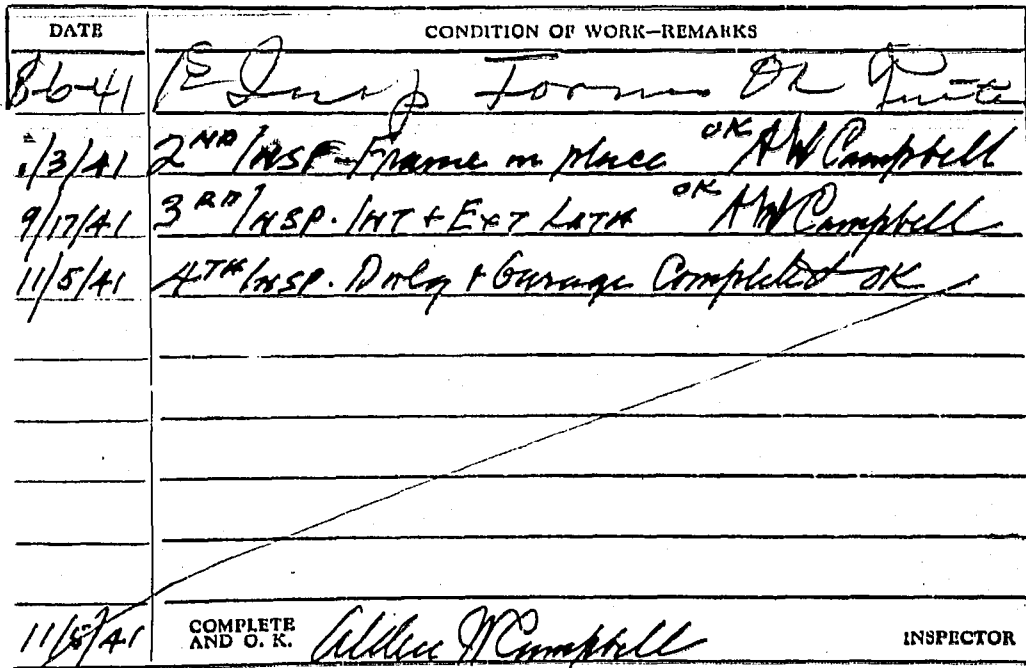 DATE CONDITION OF WORK—REMARKS
8-6-41 1st Insp Forms Ok
/3/41 2ND INSP - Frame in place OK AW Campbell
9/17/41 3RD INSP. INT + EXT LATH OK AW Campbell
11/5/41 4TH INSP. Dwlg + Garage Completed OK
11/5/41 COMPLETE AND O. K. Allen W Campbell INSPECTOR